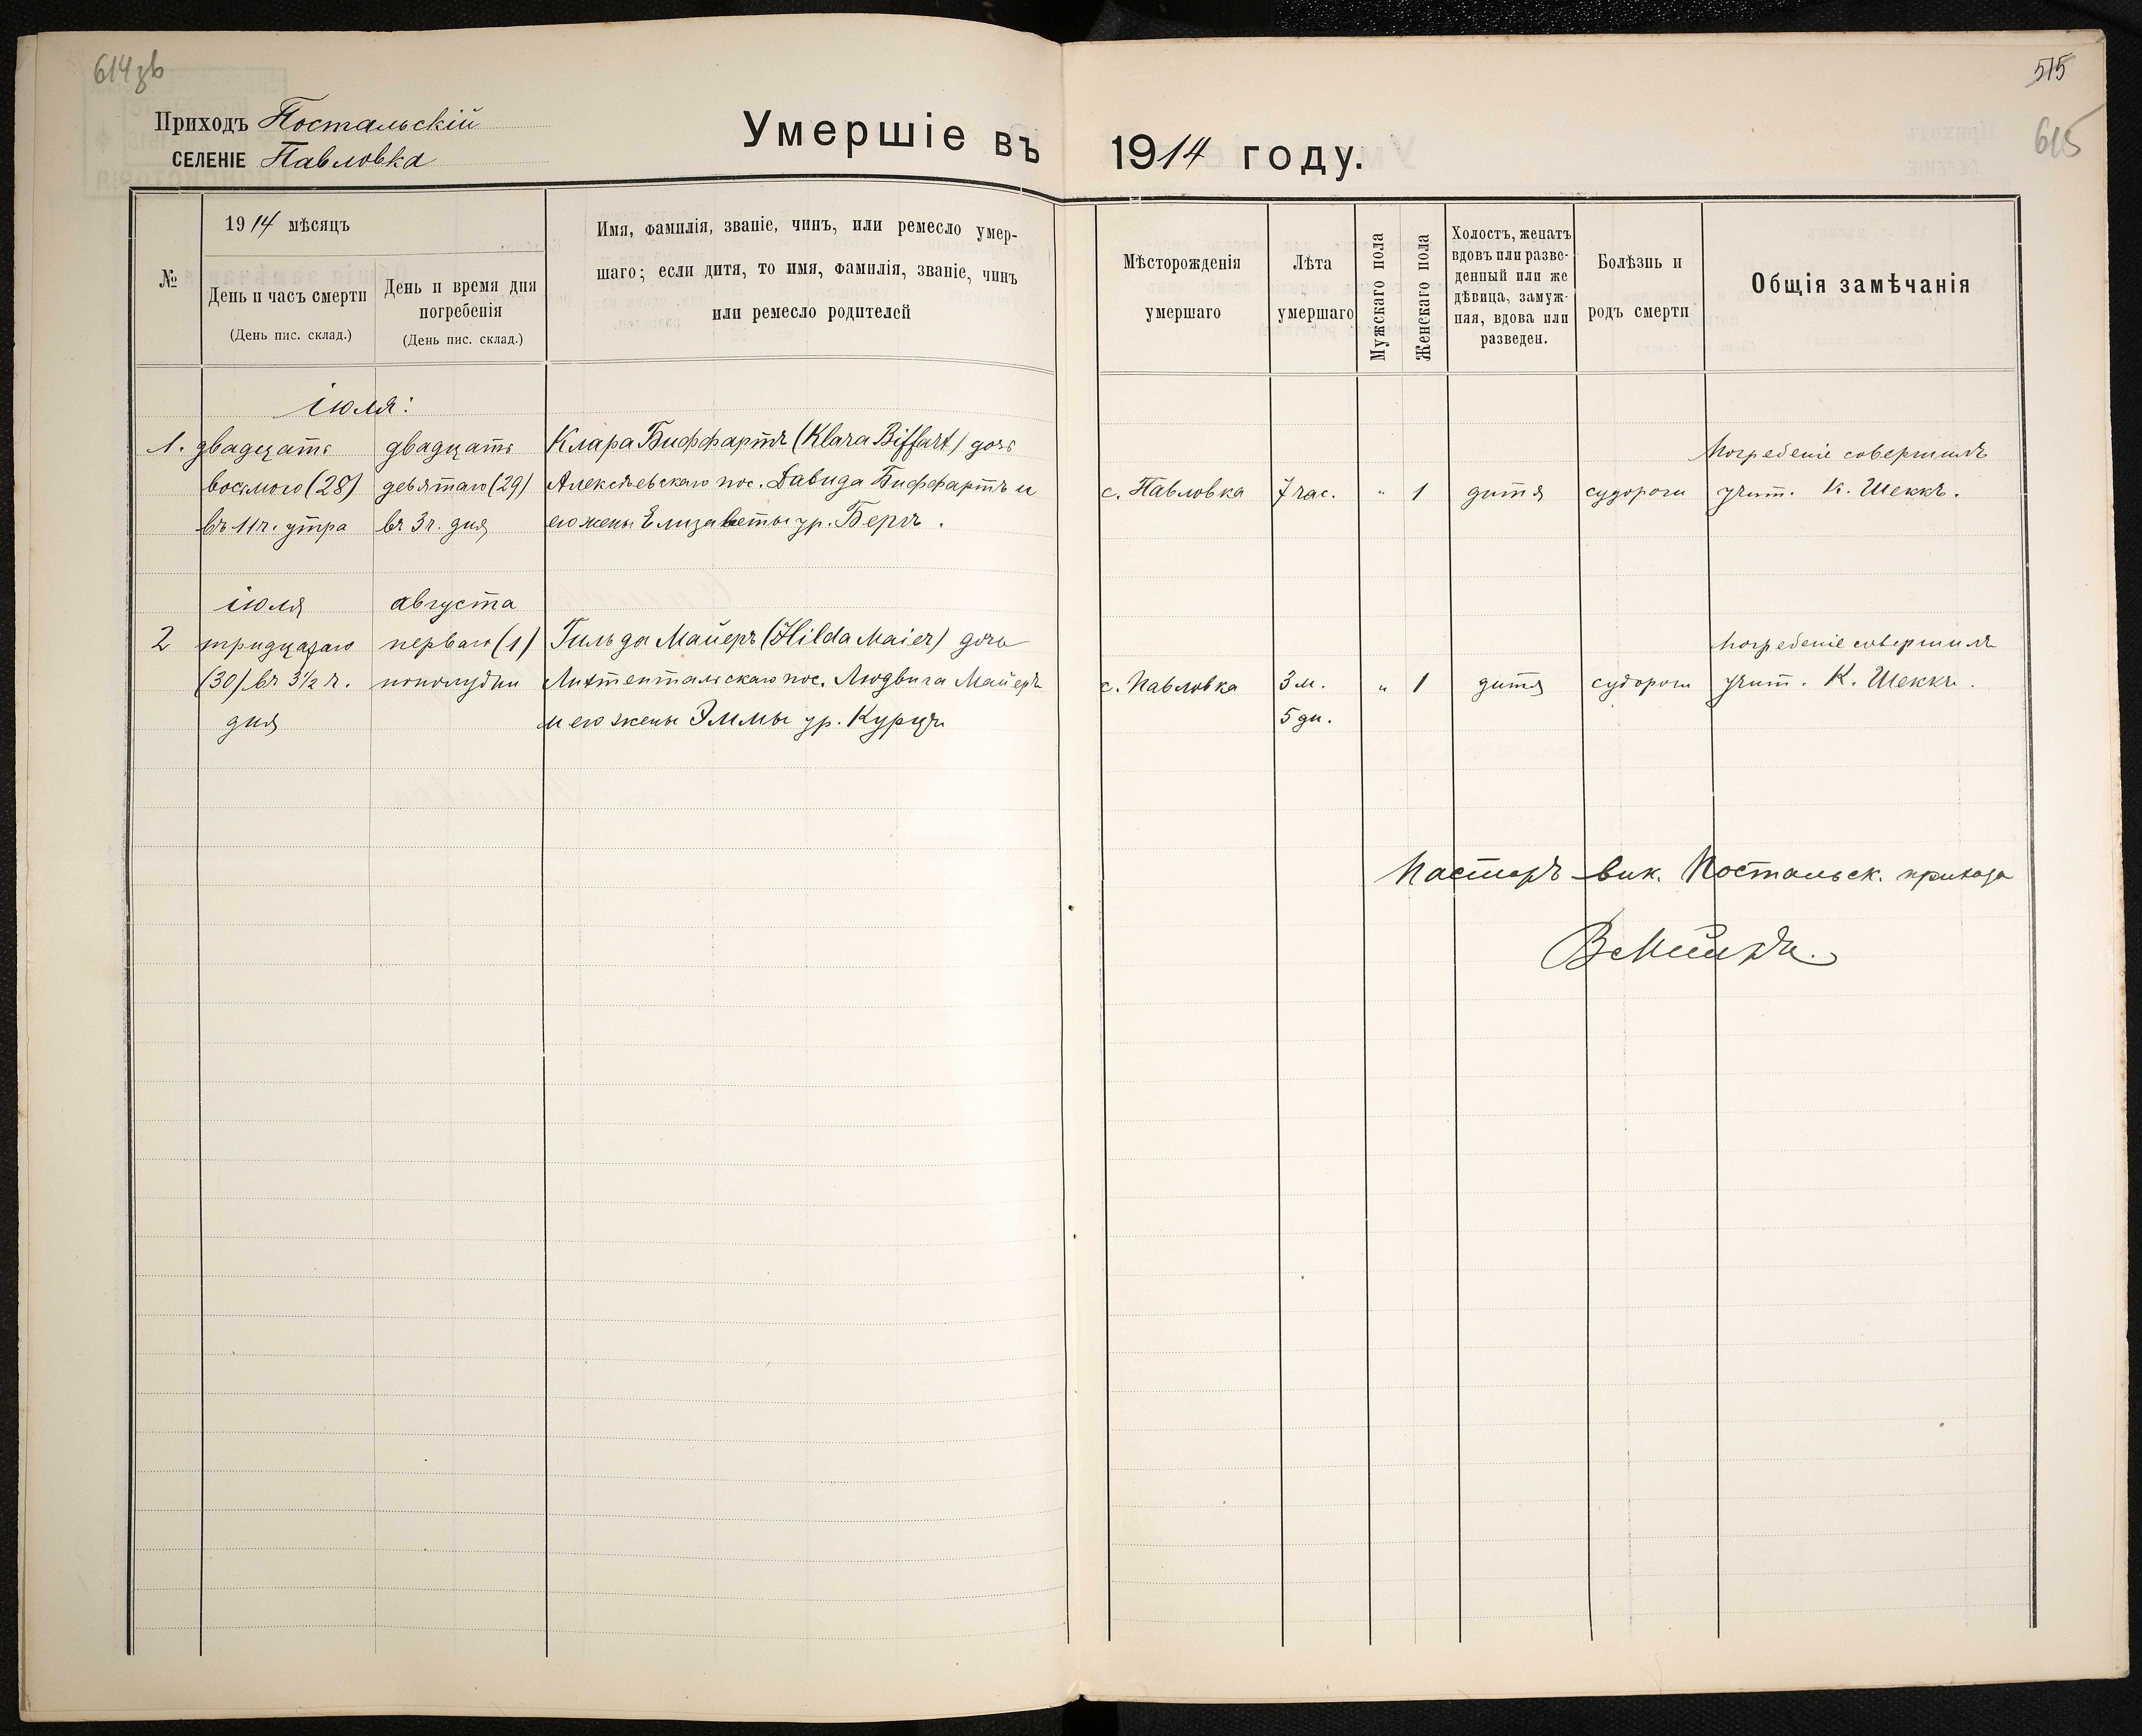 614зв
515
615
Приходъ Постальскій
СЕЛЕНІЕ Павловка
Умершіе въ 1914 году.
№
1914 мѣсяцъ
День и часъ смерти
(День пис. склад.)
День и время дня
погребенія
(День пис. склад.)
Имя, фамилія, званіе, чинъ, или ремесло умер-
шаго; если дитя, то имя, фамилія, званіе, чинъ
или ремесло родителей
Мѣсторожденія
умершаго
Лѣта
умершаго
Мужскаго пола
Женскаго пола
Холостъ, женатъ
вдовъ или разве-
денный или же
дѣвица, замуж-
няя, вдова или
разведен.
Болѣзнь и
родъ смерти
Общія замѣчанія
іюля:
1. двадцать
восьмого (28)
въ 11 ч. утра
двадцать
девятаго (29)
въ 3 ч. дня
Клара Биффартъ (Klara Biffart) дочь
Алексѣевскаго пос. Давида Биффартъ и
его жены Елизаветы ур. Бергъ.
с. Павловка
7 час.
" 1
дитя
судороги
Погребеніе совершилъ
учит. К. Шеккъ.
іюля
2 тридцатаго
(30) въ 3½ ч.
дня
августа
перваго (1)
пополудни
Гильда Майеръ (Hilda Maier) дочь
Лихтентальскаго пос. Людвига Майеръ
и его жены Эммы ур. Курцъ
с. Павловка
3 м.
5 дн.
" 1
дитя
судороги
Погребеніе совершилъ
учит. К. Шеккъ.
Пасторъ-вик. Постальск. прихода